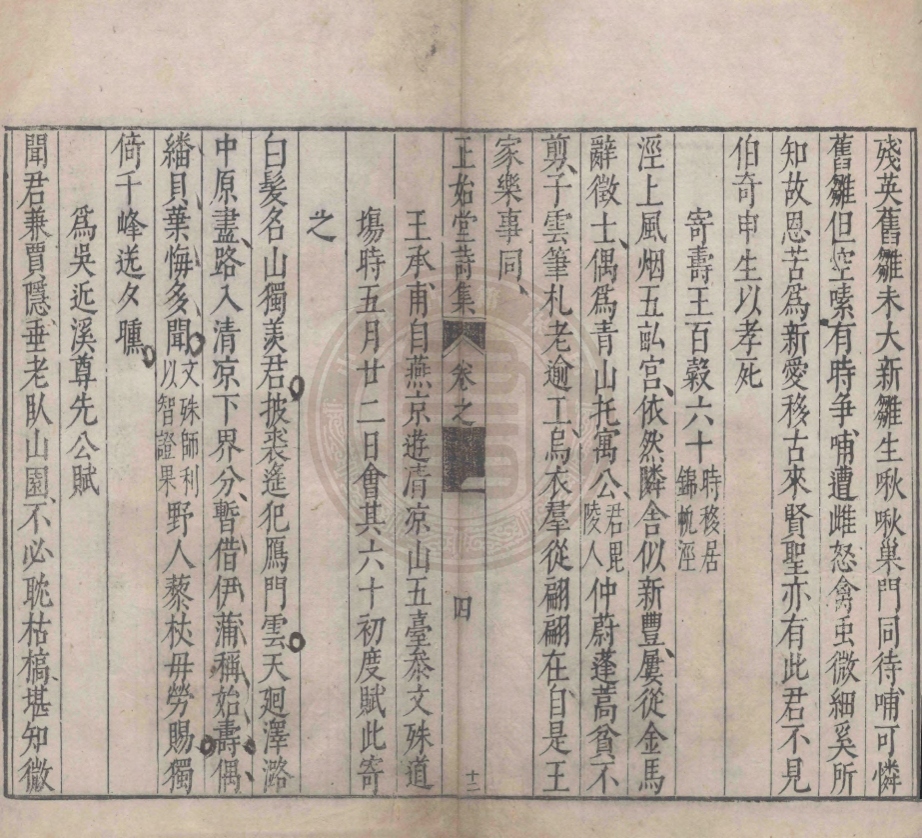 殘英舊雛未大新雛生啾啾巢門同待哺可憐
舊雛但空嗉有時爭哺遭雌怒禽虫微細奚所
知故恩苦爲新愛移古來賢聖亦有此君不見
伯奇申生以孝死
寄壽王百穀六十時移居錦帆涇
涇上風烟五畝宮依然隣舍似新豐屢從金馬
辭徵士偶爲青山托寓公君毘陵人仲蔚蓬蒿貧不
剪子雲筆札老逾工烏衣羣從翩翩在自是王
家樂事同
正始堂詩集 卷之四 十二
王承甫自燕京遊清凉山五臺叅文殊道
塲時五月廿二日會其六十初度賦此寄
之
白髮名山獨羨君披裘遙犯鴈門雲天廻澤潞
中原盡路入清凉下界分暫借伊蒲稱始壽偶
繙貝葉悔多聞文殊師利以智證果野人藜杖毋勞賜獨
倚千峰送夕曛
爲吳近溪尊先公賦
聞君兼賈隱垂老臥山園不必耽枯槁堪知微